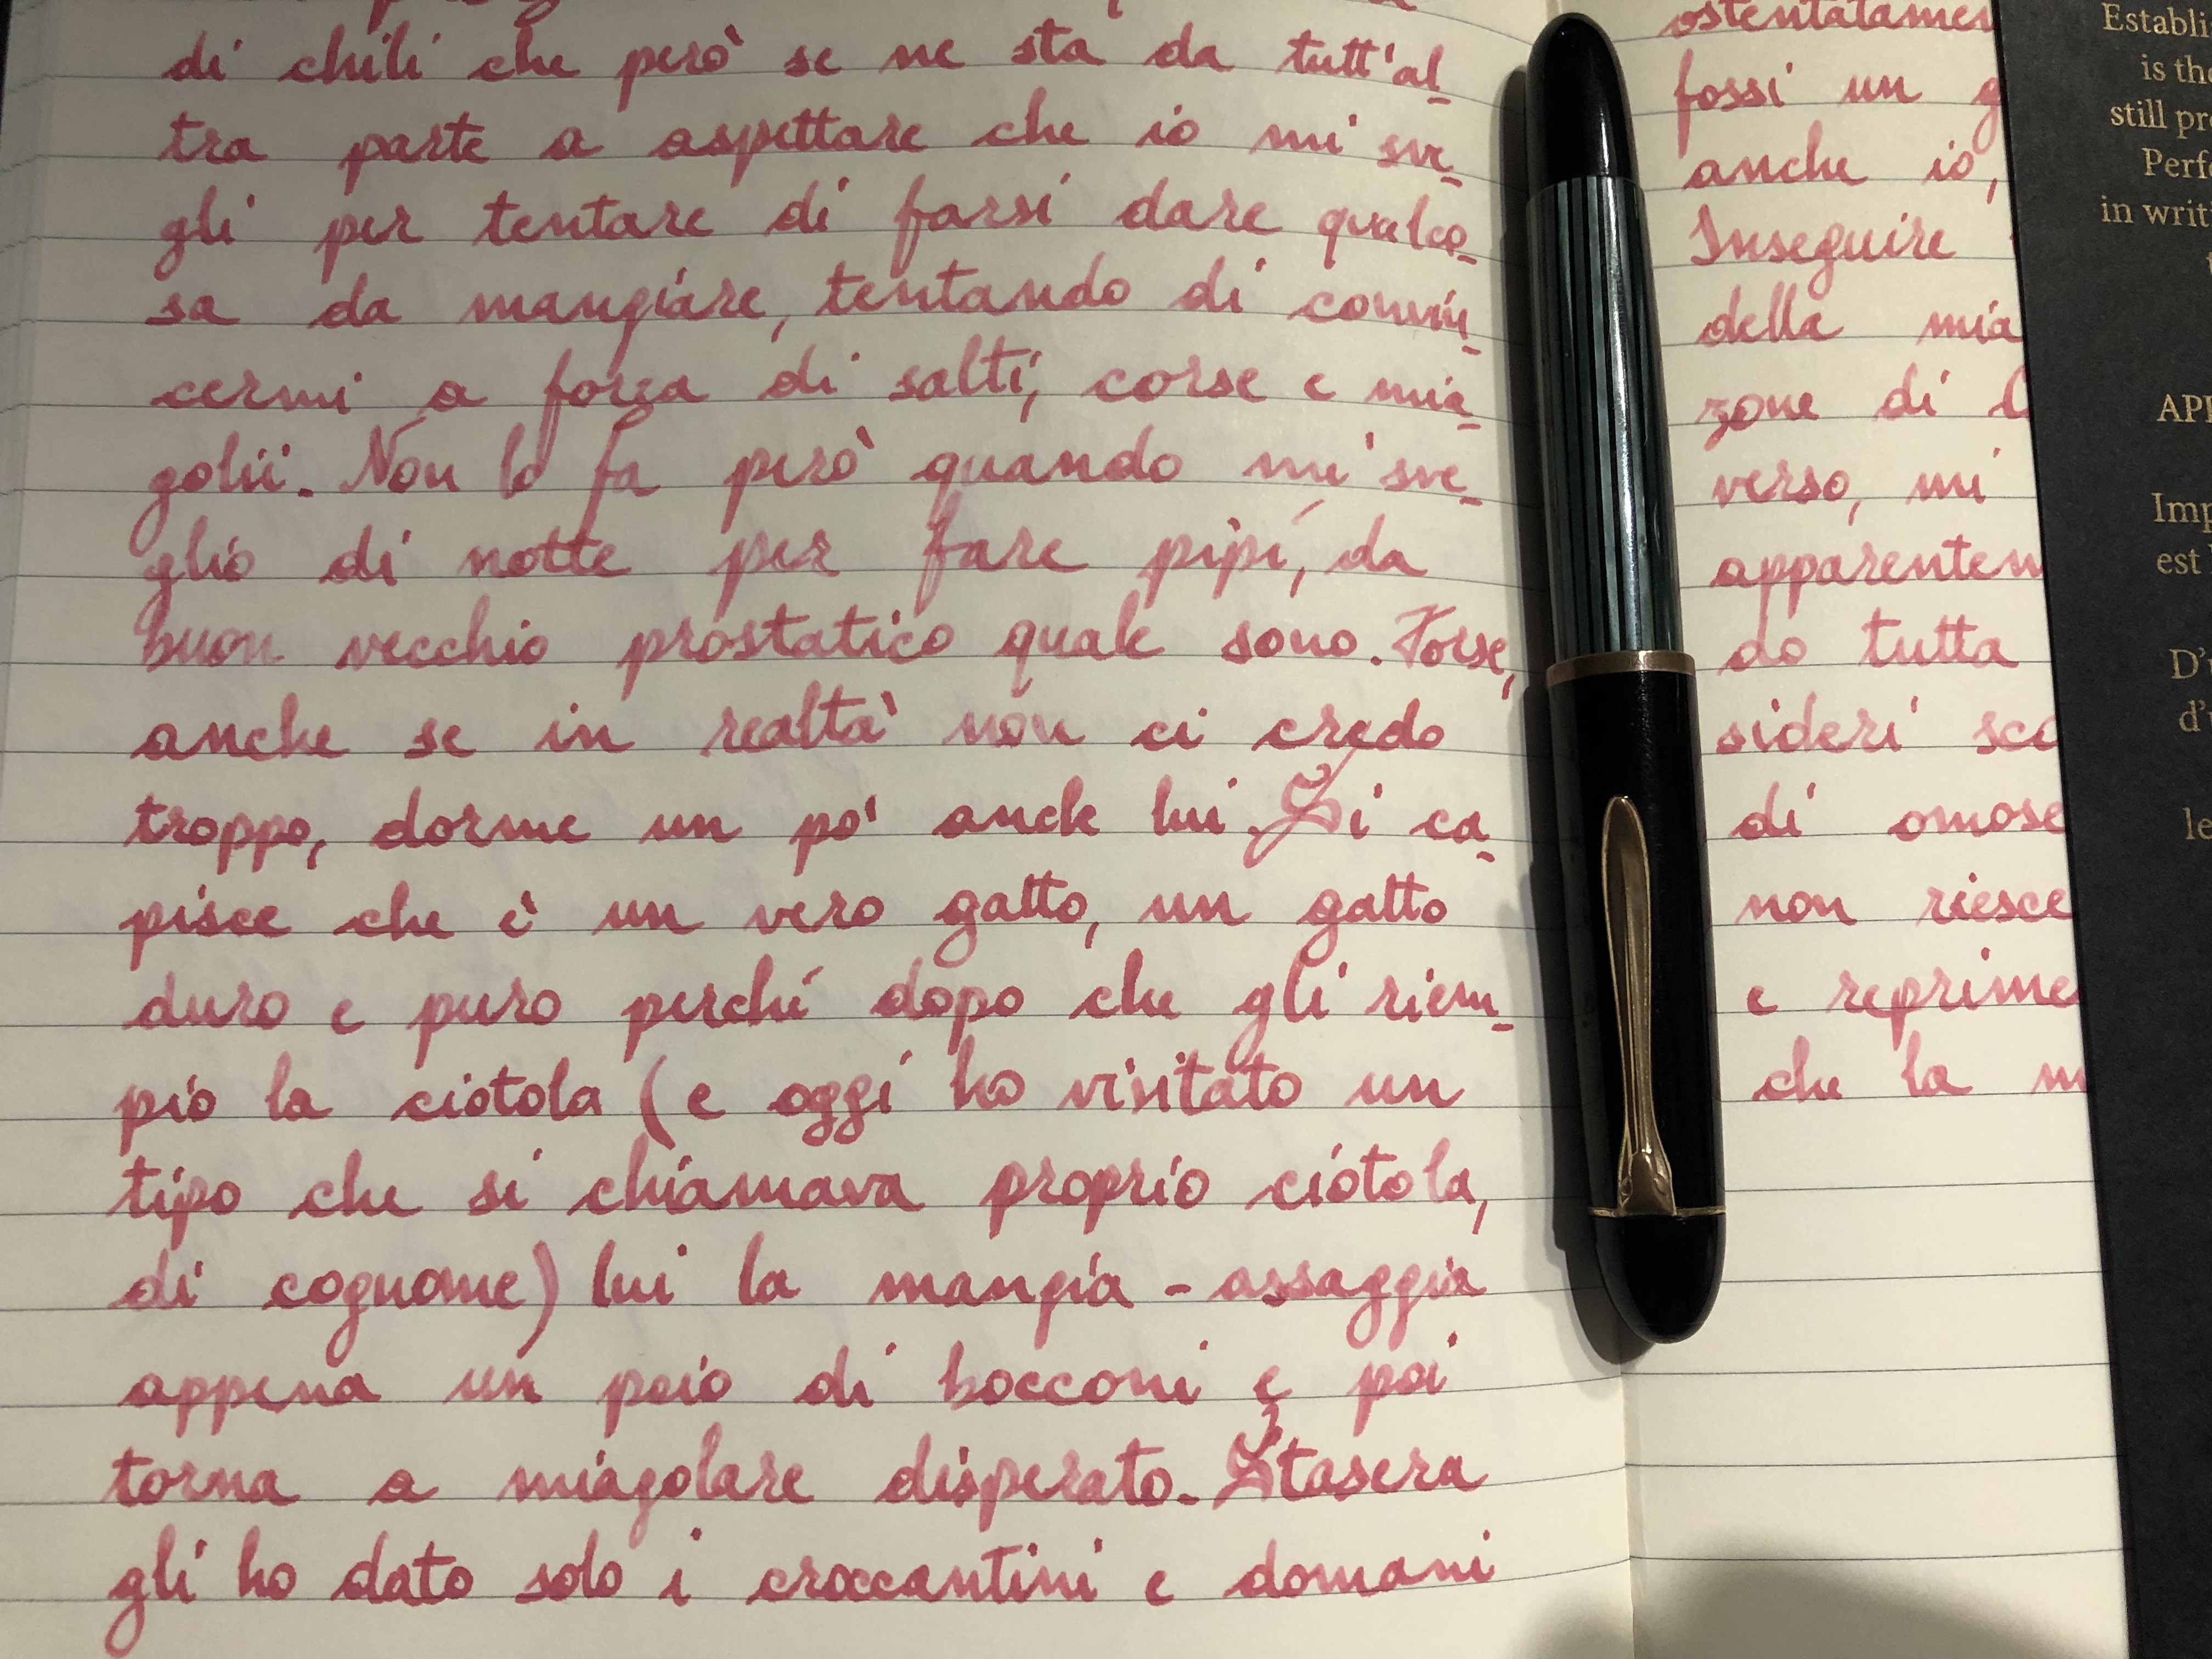 di chili che però se ne sta da tutt'al_
tra parte a aspettare che io mi sve_
gli per tentare di farsi dare qualco_
sa da mangiare, tentando di convin_
cermi a forza di salti, corse e mia_
golii. Non lo fa però quando mi sve_
glio di notte per fare pipì, da
buon vecchio prostatico quale sono. Forse,
anche se in realtà non ci credo
troppo, dorme un po' anche lui. Si ca_
pisce che è un vero gatto, un gatto
duro e puro perché dopo che gli riem_
pio la ciotola (e oggi ho visitato un
tipo che si chiamava proprio ciotola,
di cognome) lui la mangia - assaggia
appena un paio di bocconi e poi
torna a miagolare disperato. Stasera
gli ho dato solo i croccantini e domani
ostentatamen
fossi un g
anche io,
Inseguire
della mia
zone di
verso, mi
apparentem
do tutta
sideri sco
di omose
non riesce
e reprime
che la m
Establi
is the
still pr
Perfe
in writ
t
API
Imp
est
D'
d'
le